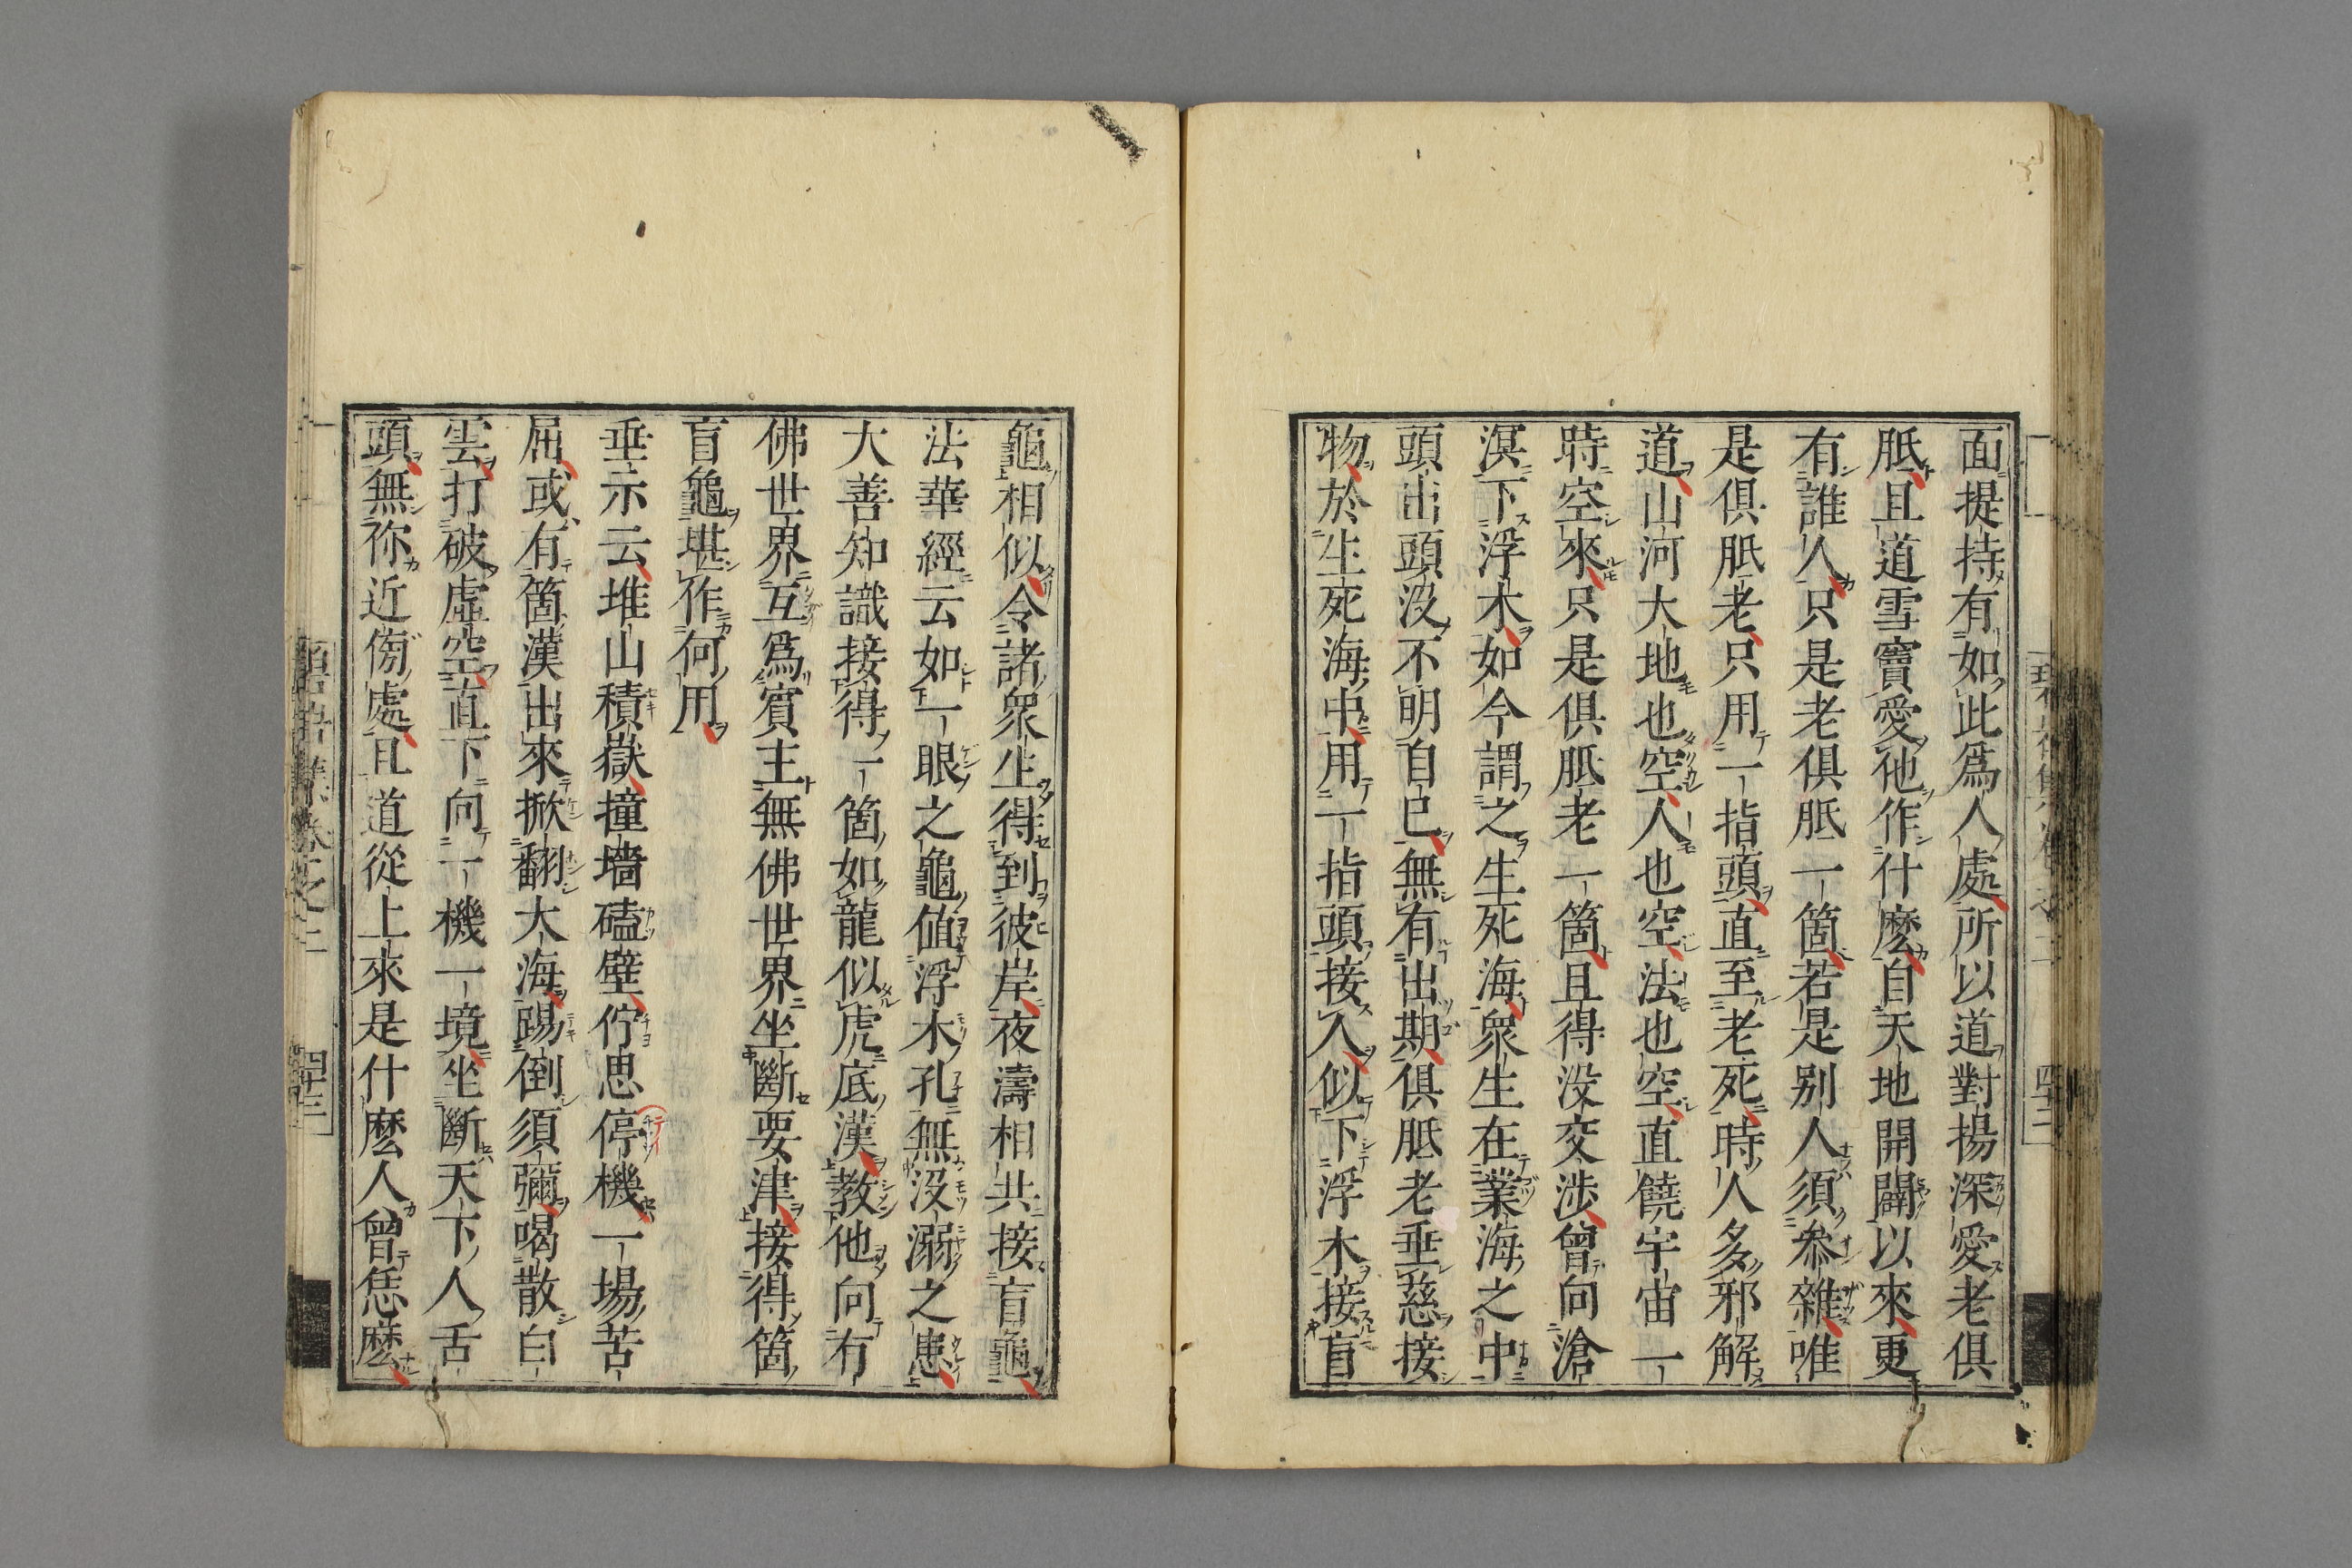 面提持有如此爲人處所以道對揚深愛老俱
胝且道雪竇愛他作什麽自天地開闢以來更
有誰人只是老俱胝一箇若是别人須叅雜唯
是俱胝老只用一指頭直至老死時人多邪解
道山河大地也空人也空法也空直饒宇宙一
時空來只是俱胝老一箇且得没交渉曾向滄
溟下浮木如今謂之生死海衆生在業海之中
頭出頭没不明自已無有出期俱胝老垂慈接
物於生死海中用一指頭接人似下浮木接盲
龜相似令諸衆生得到彼岸夜濤相共接盲龜
法華經云如一眼之龜値浮木孔無没溺之患
大善知識接得一箇如龍似虎底漢教他向有
佛世界互爲賓主無佛世界坐斷要津接得箇
盲龜堪作何用
垂示云堆山積嶽撞墻磕壁佇思停機一場苦
屈或有箇漢出來掀翻大海踢倒須彌喝散白
雲打破虚空直下向一機一境坐斷天下人舌
頭無祢近傍處且道從上來是什麽人曾恁麽